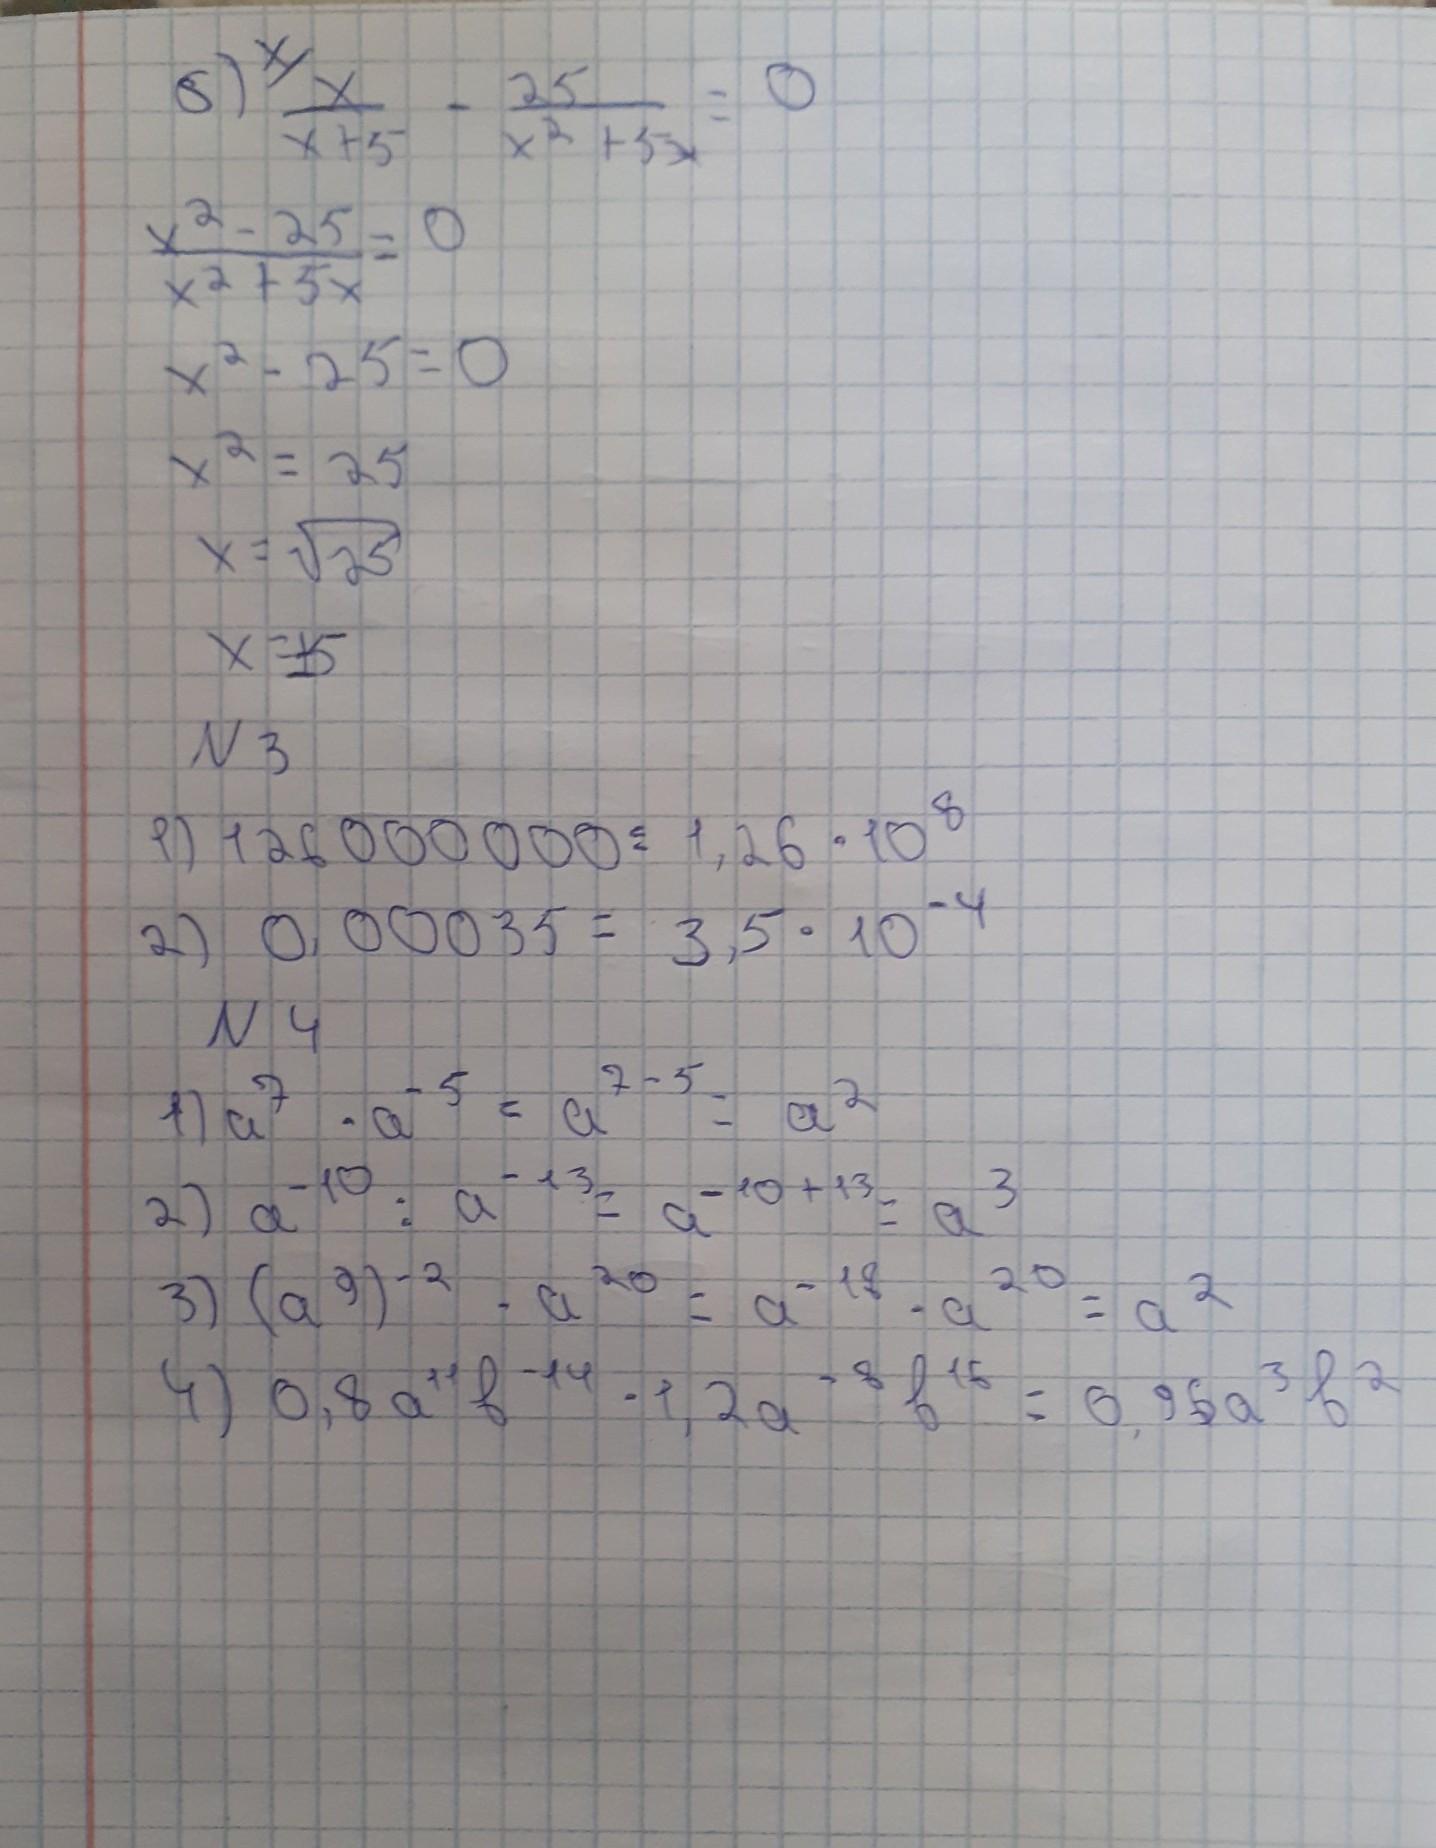 б) x/ x/(x+5) - 25/(x² + 5x) = 0
(x² - 25)/(x² + 5x) = 0
x² - 25 = 0
x² = 25
x = √25
x = ±5
N 3
1) 126 000 000 = 1,26 · 10⁸
2) 0,00035 = 3,5 · 10⁻⁴
N 4
1) a⁷ · a⁻⁵ = a⁷⁻⁵ = a²
2) a⁻¹⁰ : a⁻¹³ = a⁻¹⁰⁺¹³ = a³
3) (a⁹)⁻² · a²⁰ = a⁻¹⁸ · a²⁰ = a²
4) 0,8a¹¹b⁻¹⁴ · 1,2a⁻⁸b¹⁶ = 0,96a³b²